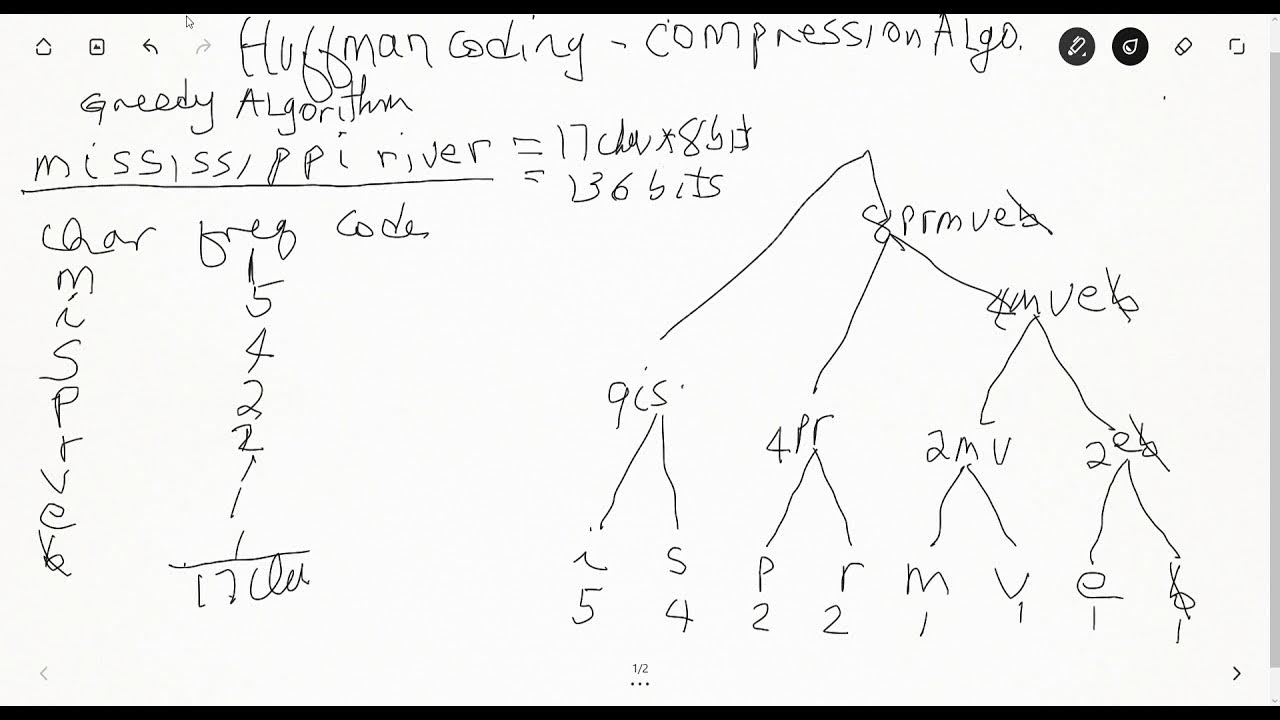 Huffman coding - compression Algo.
Greedy Algorithm
mississippi river = 17 char * 8 bits
= 136 bits
char freq code
m 1
i 5
s 4
p 2
r 2
v 1
e 1
ƀ 1
17 char
8 prmveƀ
4mveƀ
9is
4pr
2mv
2eƀ
i s p r m v e ƀ
5 4 2 2 1 1 1 1
1/2